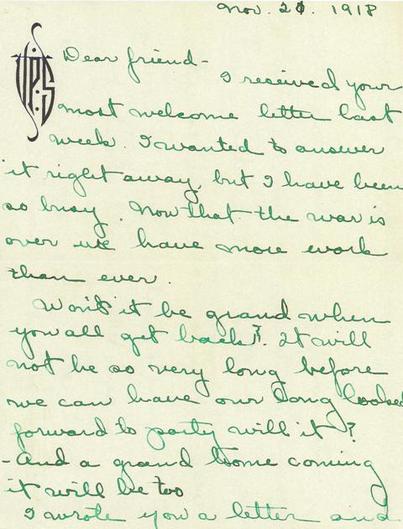 Nov. 21. 1918
VPS
Dear friend -
I received your
most welcome letter last
week. I wanted to answer
it right away, but I have been
so busy. Now that the war is
over we have more work
than ever.
Won't it be grand when
you all get back? It will
not be so very long before
we can have our long looked
forward to party will it?
- And a grand home coming
it will be too
I wrote you a letter and